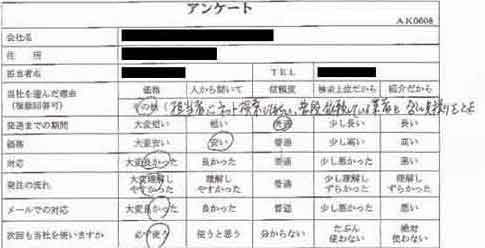 アンケート
AK0608
会社名
住所
担当者名 TEL
当社を選んだ理由
(複数回答可)
価格 人から聞いて 信頼度 検索上位だから 紹介だから
その他 (担当者にネット検索
発送までの期間 大変短い 短い 普通 少し長い 長い
価格 大変安い 安い 普通 少し高い 高い
対応 大変良かった 良かった 普通 少し悪かった 悪い
発注の流れ 大変理解しやすかった 理解しやすかった 普通 少し理解しずらかった 理解しずらかった
メールでの対応 大変良かった 良かった 普通 少し悪かった 悪い
次回も当社を使いますか 必ず使う 使うと思う 分からない たぶん使わない 絶対使わない